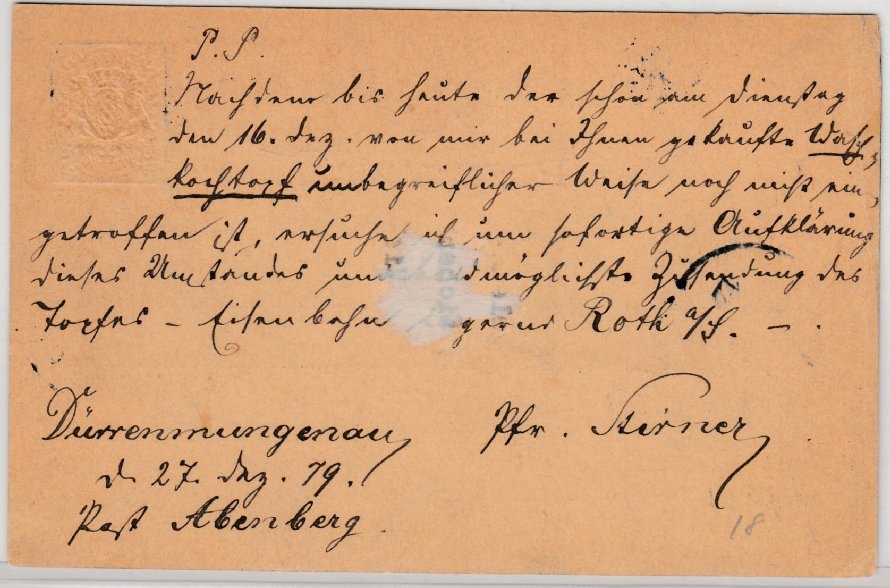 P. P.
Nachdem bis heute der schon am Dienstag
den 16. Dez. von mir bei Ihnen gekaufte Wasch-
kochtopf unbegreiflicher Weise noch nicht ein-
getroffen ist, ersuche ich um sofortige Aufklärung
dieses Umstandes un dmöglichste Zusendung des
Topfes – Eisenbahn lagernd Roth a/S. –.
Dürrenmungenau, Pfr. Stirner,
d. 27. Dez. 79.
Post Abenberg.
18